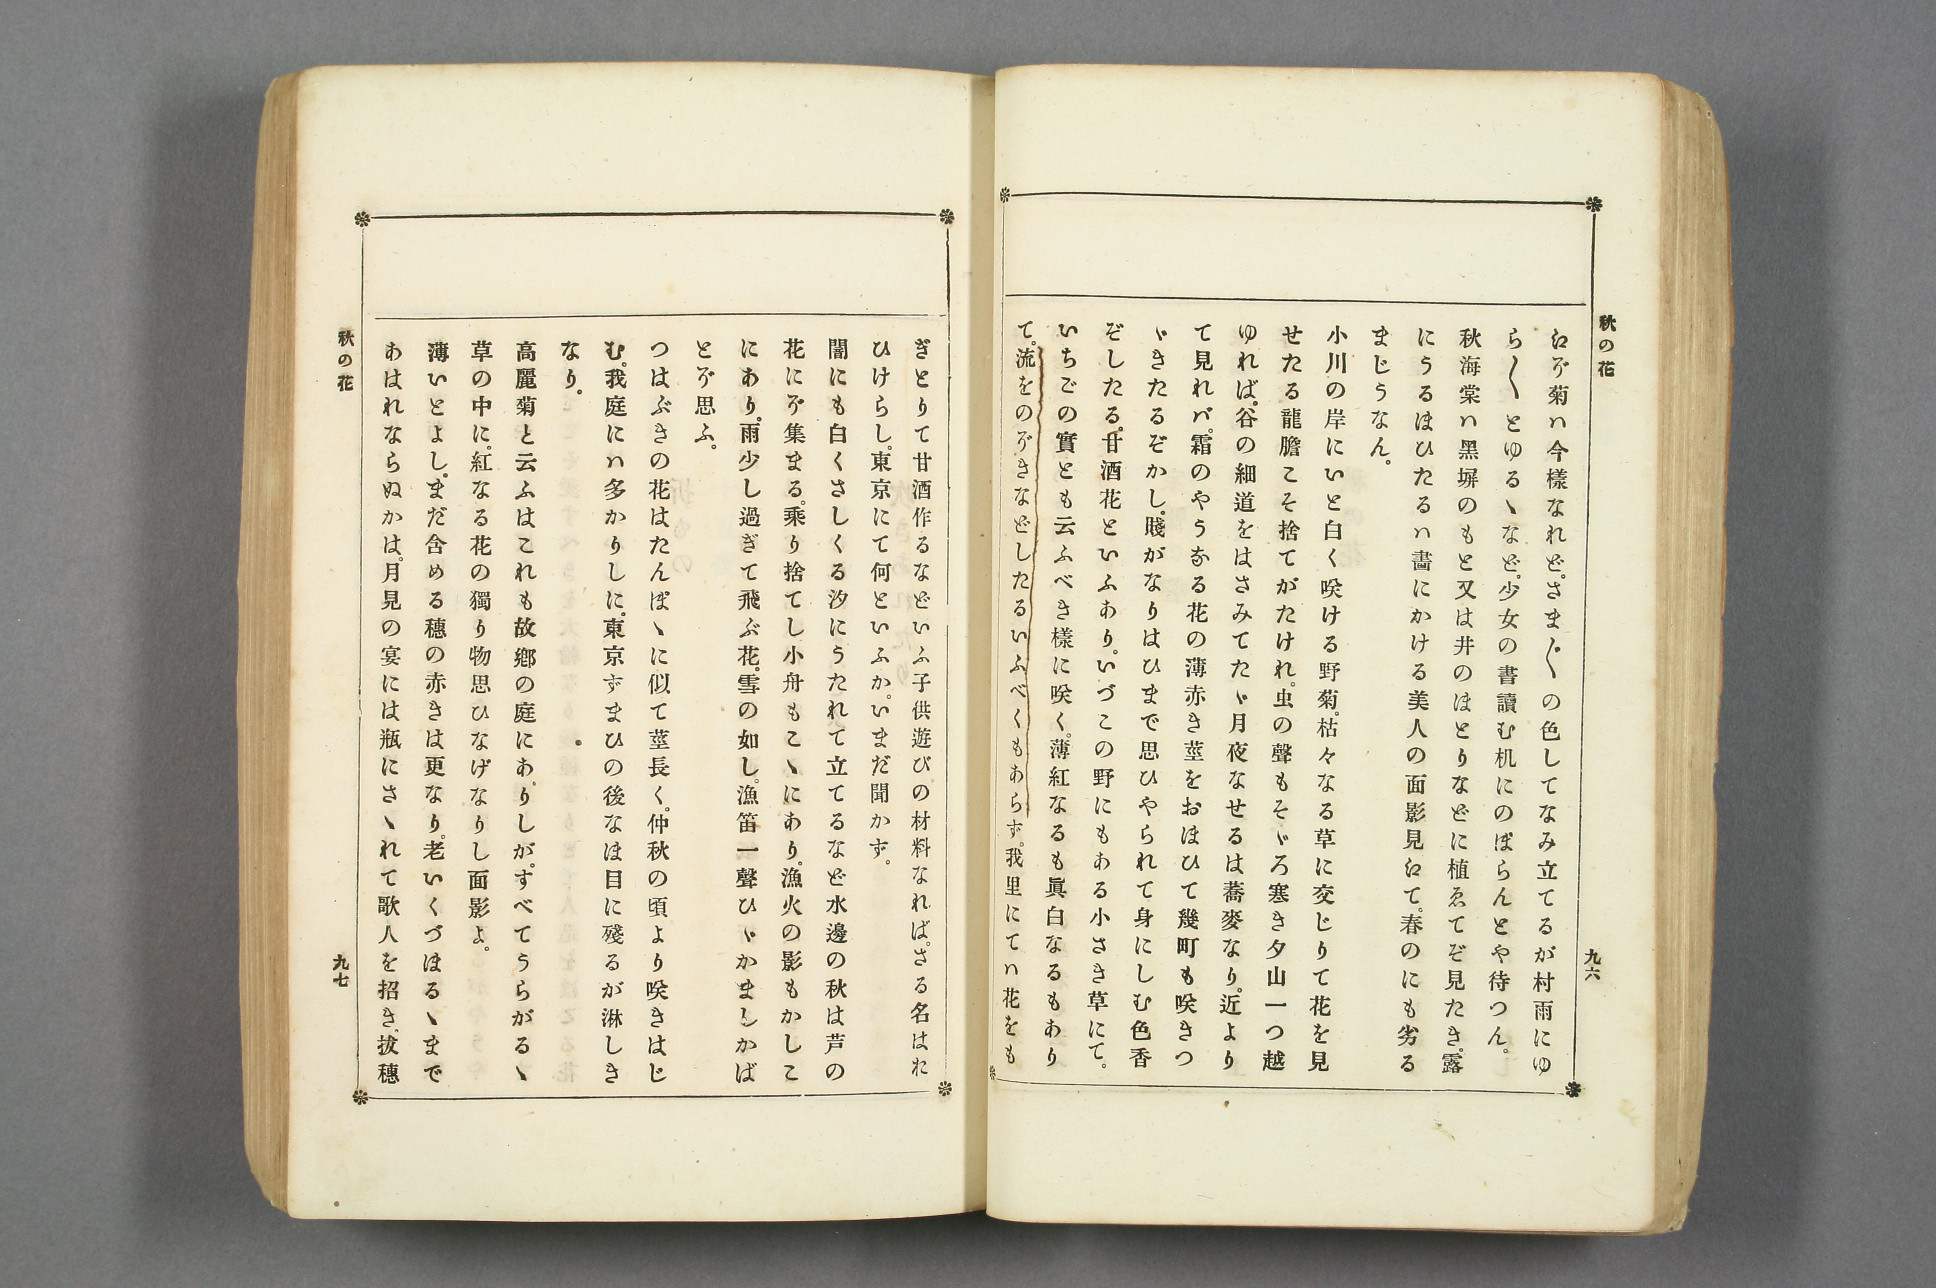 秋の花
九六
えぞ菊ハ今樣なれど。さま〴〵の色してなみ立てるが村雨にゆ
ら〳〵とゆるゝなど。少女の書讀む机にのぼらんとや待つん。
秋海棠ハ黑塀のもと又は井のほとりなどに植ゑてぞ見たき。露
にうるほひたるハ畵にかける美人の面影見えて。春のにも劣る
まじうなん。
小川の岸にいと白く咲ける野菊。枯々なる草に交じりて花を見
せたる龍膽こそ捨てがたけれ。虫の聲もそゞろ寒き夕山一つ越
ゆれば。谷の細道をはさみてたゞ月夜なせるは蕎麥なり。近より
て見れバ。霜のやうなる花の薄赤き莖をおほひて幾町も咲きつ
ゞきたるぞかし。賤がなりはひまで思ひやられて身にしむ色香
ぞしたる。甘酒花といふあり。いづこの野にもある小さき草にて。
いちごの實とも云ふべき樣に咲く。薄紅なるも眞白なるもあり
て。流をのぞきなどしたるいふべくもあらず。我里にてハ花をも
ぎとりて甘酒作るなどいふ子供遊びの材料なれば。さる名はお
ひけらし。東京にて何といふか。いまだ聞かず。
闇にも白くさしくる汐にうたれて立てるなど水邊の秋は芦の
花にぞ集まる。乘り捨てし小舟もこゝにあり。漁火の影もかしこ
にあり。雨少し過ぎて飛ぶ花。雪の如し。漁笛一聲ひゞかましかば
とぞ思ふ。
つはぶきの花はたんぽゝに似て莖長く。仲秋の頃より咲きはじ
む。我庭にハ多かりしに。東京ずまひの後なほ目に殘るが淋しき
なり。
高麗菊と云ふはこれも故鄕の庭にありしが。すべてうらがるゝ
草の中に。紅なる花の獨り物思ひなげなりし面影よ。
薄いとよし。まだ含める穗の赤きは更なり。老いくづほるゝまで
あはれならぬかは。月見の宴には瓶にさゝれて歌人を招き。拔穗
秋の花
九七